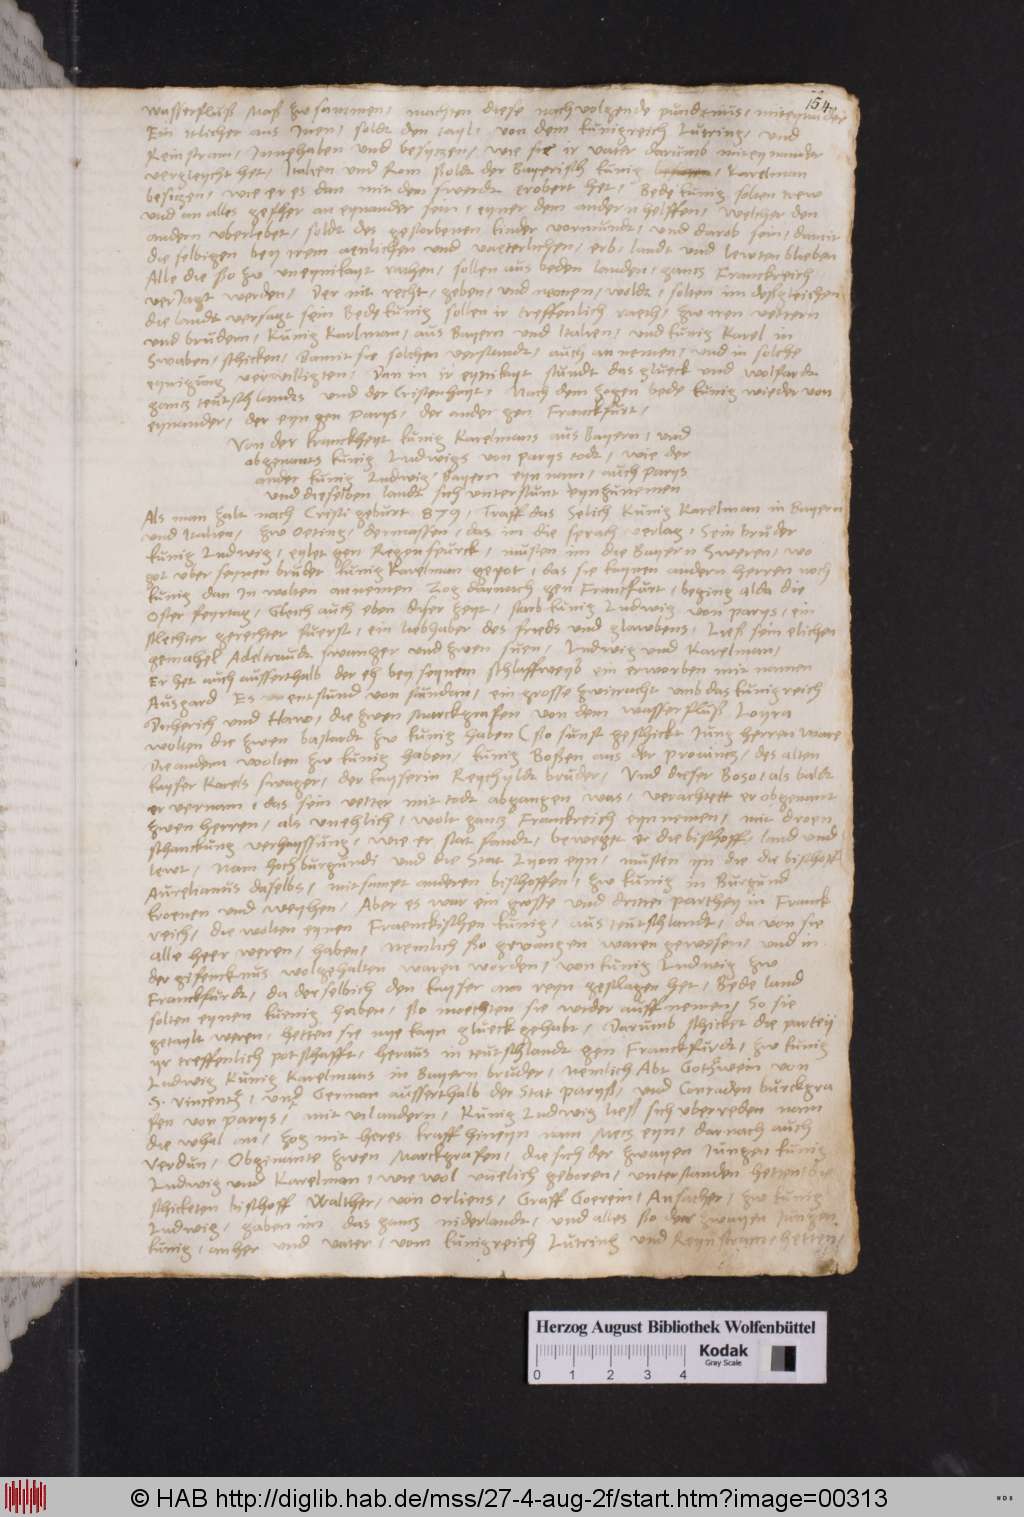 154
wasserfluß Maß zw sammen / machten diese nachvolgende pundtnus / miteynander
Ein itlicher aus Inen / soldt den tayl / von dem künigreich Lutring / und
Reinstram / Innehaben und besytzen / wie sie ir vater darumb miteynander
vergleycht het / Italien und Rom soldt der Bayerisch künig / Karelman
besitzen / wie er es dan mit dem swerdt erobert het / Bede künig solten trew
und an alles gefher an eynander sein / eyner dem andern helffen / welcher den
andern uberlebet / soldt des gestorbenen kinder vormundt / und darob sein / damit
die selbigen bey irem aenlichen und vaeterlichen / erb / landt und lewten blieben
Alle die so zw uneynikayt rathen / sollen aus beden landen / gantz Franckreich
verJagt werden / Der nit recht / geben / und nemen / woldt / solten im desgleichen
die landt versagt sein Bede künig sollen ir treffenlich raeth / zw iren vettern
und brudern / künig Karlman / aus Bayern und Italien / und künig Karel in
Swaben / schicken / Damit sie solchen verstandt / auch an nemen / und in solche
eynigung verwilligten / Dan in ir eynikayt stundt das glueck und wolfardt
gantz teutschlandts und der Cristenhayt / Nach dem zogen bede künig wieder von
eynander / der eyn gen Parys / der ander gen Franckfurt /
Von der kranckheyt künig Karelmans aus Bayern / und
abgenants künig Ludwigs von parys todt / wie der
ander künig Ludwig / Bayern eyn nam / auch parys
und dieselben landt sich unterstunt eynzunemen
Als man zalt nach Cristi geburt 879 / Traff das Selich künig Karelman in Bayern
und Italien / zw Oeting / dermassen / das im die sprach verlag / Sein bruder
künig Ludwig / eylet gen Regenspurck / musten im die Bayern Sweren / wo
got uber seynen bruder künig Karelman gepot / das sie kaynen andern herren noch
künig dan In wolten annemen Zog darnach gen Franckfurt / beging alda die
Oster feyrtag / Gleich auch eben diser zeyt / starb künig Ludwig von parys / ein
slechter gerechter fuerst / ein liebhaber des frieds und glawbens / Ließ sein elichen
gemahel Adeltraudt swanger und zwen suen / Ludwig und Karelman /
Er het auch ausserthalb der eh bey seynem schlaffweyb ein erworben mit namen
Ausgard Es entstund von stundan / ein grosse zwitracht umb das künigreich
Ditherich und Haw / die zwen Marckgrafen von dem wasserfluß Loyra
wolten die zwen bastardt zw künig haben ( so sunst geschickt Jung herren ware
Die andern wolten zw künig haben / künig Bosen aus der provintz / des alten
kayser Karels swager / der kayserin Reychyldt bruder / Und dieser Boso / als baldt
er vernam / das sein vetter mit todt abgangen was / verachtett er obgenant
zwen herren / als unehlich / wolt gantz Franckreich eynnemen / mit droen
schanckung verhayssung / wie er stat fandt / beweget er die bischoff / land und
lewt / Nam hochburgundi und die Stat Lyon eyn / musten yn die die bischoff
Aurelianus daselbs / mitsampt anderen bischoffen / zw künig in Burgund
kroenen und weyhen / Aber es war ein grosse und dritte parthey in Franck
reich / die wolten eynen Fraenckischen künig / aus teutschlandt / da von sie
alle heer weren / haben / Nemlich so gevangen waren gewesen / und in
der gefencknus wolgehalten waren worden / von künig Ludwig zw
Franckfurdt / da der selbich den kayser am reyn geschlagen het / Bede land
solten eynen kuenig haben / so moechten sie wider auff nemen / So sie
getaylt weren / hetten sie nye kayn glueck gehabt / Darumb schicket die partey
yr treffenlich potschafft / heraus in teutschlandt gen Franckfurdt / zw künig
Ludwig künig Karelmans in Bayern bruder / Nemlich Abt Gothwein von
S. Vincentz / und German ausserthalb der Stat paryß / und Conraden burckgra
fen von parys / mit vil andern / künig Ludwig ließ sich uberreden nam
die whal an / zog mit heres krafft hineyn nam Metz eyn / darnach auch
Verdun / Obginante zwen Marckgrafen / die sich der zwayen Jungen künig
Ludwig und Karelman / wie wol unelich geboren / unterstanden hetten / die
schicketen bischoff Walther / von Orliens / Graff Goerein / Ansacher / zw künig
Ludwig / gaben im das gantz niderlandt / und alles so der zwayen Jungen
künig / anher und vater / vom künigreich Lutring und Reynstram hetten /
Herzog August Bibliothek Wolfenbüttel
Kodak
Gray Scale
0 1 2 3 4
© HAB http://diglib.hab.de/mss/27-4-aug-2f/start.htm?image=00313